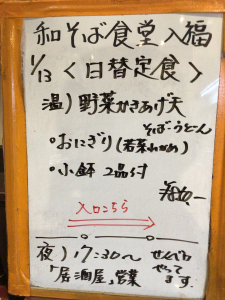 和そば食堂 入福
1/13 <日替定食>
温) 野菜かきあげ天
そば・うどん
・おにぎり(若菜わかめ)
・小鉢 2品付
入口こちら
夜) 17:30〜 せんべろ
やって
「居酒屋」営業 ます